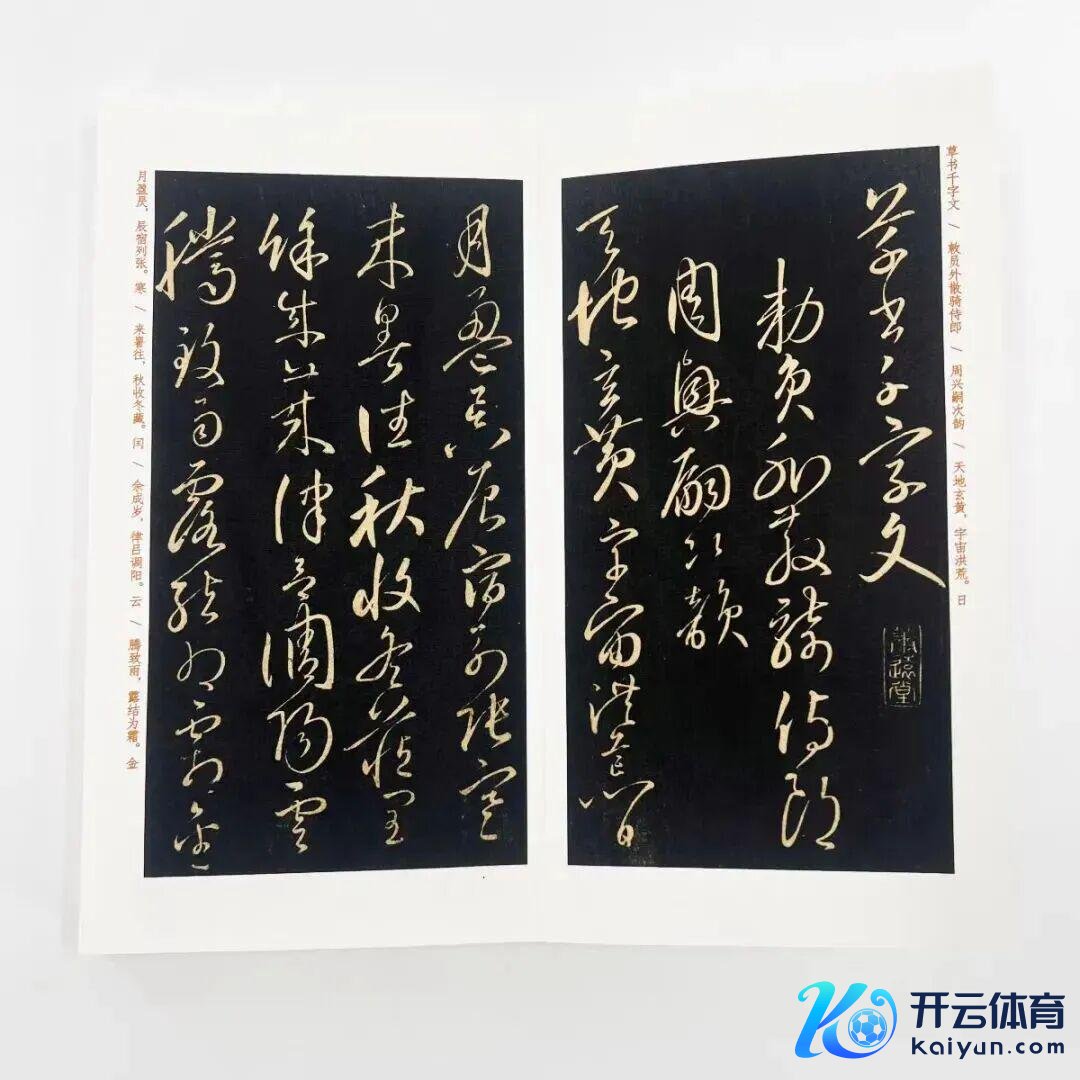 草书千字文 / 敕员外散骑侍郎 / 周兴嗣次韵 / 天地玄黄,宇宙洪荒。日
草书千字文
敕员外散骑侍郎
周兴嗣次韵
天地玄黄宇宙洪荒日
月盈昃,辰宿列张。寒 / 来暑往,秋收冬藏。闰 / 余成岁,律吕调阳。云 / 腾致雨,露结为霜。金
月盈昃辰宿列张寒
来暑往秋收冬藏闰
余成岁律吕调阳云
腾致雨露结为霜金
开云体育
kaiyun.com